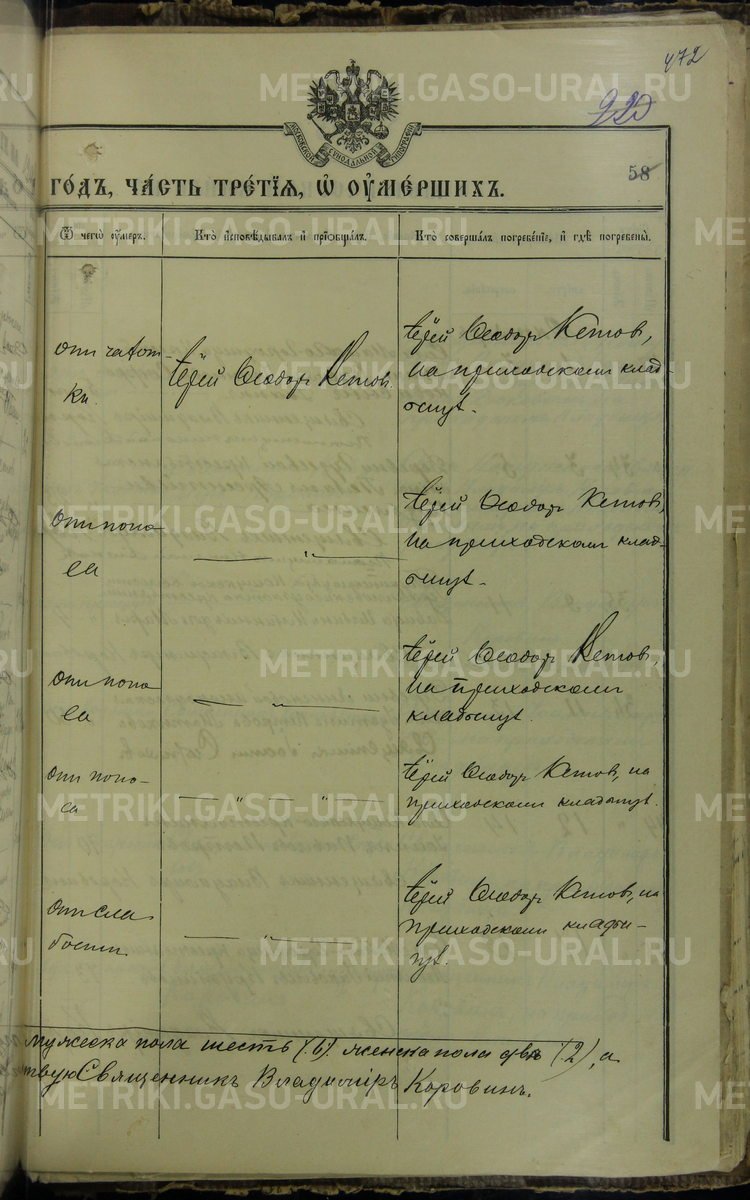 472
220
МОСКОВСКОЙ СѴНОДАЛЬНОЙ ТИПОГРАФІИ
58
ГО́ДЪ, ЧА́СТЬ ТРЕ́ТІЯ, Ѡ҆ ОУ҆МЕ́РШИХЪ.
Ѿ чегѡ̀ оу҆́меръ.
Кто̀ и҆сповѣ́дывалъ и҆ прїѡбща́лъ.
Кто̀ соверша́лъ погребе́нїе, и҆ гдѣ̀ погребены̀.
отъ чахот-
ки.
Іерей Ѳеодоръ Кетовъ.
Іерей Ѳеодоръ Кетовъ,
на приходскомъ клад-
бищѣ.
отъ поно-
са
— " —
Іерей Ѳеодоръ Кетовъ,
на приходскомъ клад-
бищѣ.
отъ поно-
са
— " —
Іерей Ѳеодоръ Кетовъ,
на приходскомъ
кладбищѣ.
отъ поно-
са
— " — " —
Іерей Ѳеодоръ Кетовъ, на
приходскомъ кладбищѣ.
отъ сла-
бости.
— " —
Іерей Ѳеодоръ Кетовъ, на
приходскомъ кладби-
щѣ.
мужеска пола шесть (6). женска пола два (2), а
твую Священникъ Владиміръ Коровинъ.
METRIKI.GASO-URAL.RU